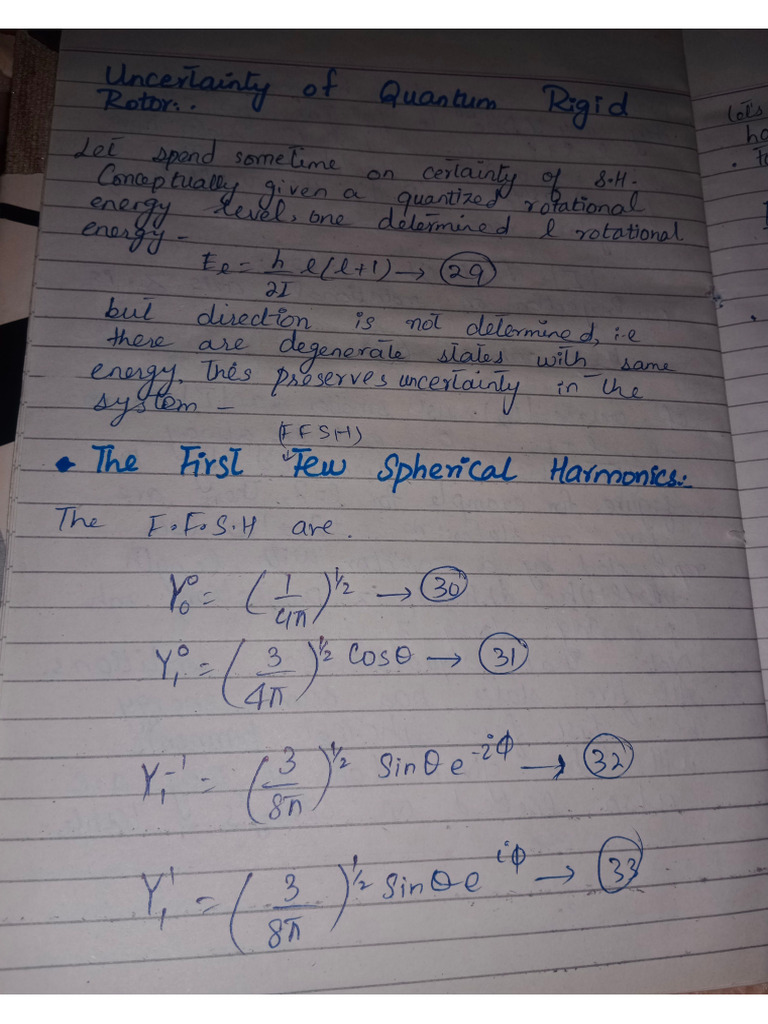 Uncertainty of Quantum Rigid
Rotor:.
Let spend sometime on certainty of S.H.
Conceptually given a quantized rotational
energy level, one determined l rotational
energy -
E_l = h/2I l(l+1) → (29)
but direction is not determined, i.e
there are degenerate states with same
energy. This preserves uncertainty in the
system -
(FFSH)
• The First Few Spherical Harmonics:
The F.F.S.H are.
Y₀⁰ = (1/4π)^1/2 → (30)
Y₁⁰ = (3/4π)^1/2 Cosθ → (31)
Y₁⁻¹ = (3/8π)^1/2 Sinθ e^-iφ → (32)
Y₁¹ = (3/8π)^1/2 Sinθ e^iφ → (33)
Let's